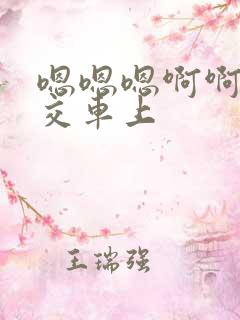 嗯嗯嗯啊啊
交车上
王瑞强